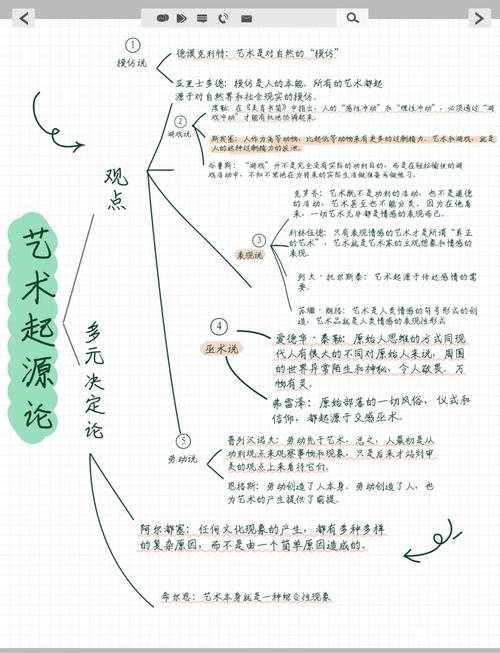 ①
模仿说
德谟克利特：艺术是对自然的“模仿”
亚里士多德：模仿是人的本能，所有的艺术都起
源于对自然界和社会现实的模仿。
②
游戏说
席勒：在《美育书简》中指出，人的“感性冲动”和“理性冲动”，必须通过“游
戏冲动”才能有机地协调起来。
斯宾塞：人作为高等动物，比起低等动物来有更多的过剩精力。艺术和游戏，就是
人的这种过剩精力的发泄。
谷鲁斯：“游戏”并不是完全没有实际的功利目的，而是在轻松愉快的游
戏活动中，不知不觉地在为将来的实际生活做准备或做练习。
观点
③
表现说
克罗齐：艺术既不是功利的活动，也不是道德
的活动，艺术甚至也不能分类。因为在他看
来，一切艺术无非都是情感的表现而已。
科林伍德：只有表现情感的艺术才是所谓“真正
的艺术”，艺术就是艺术家的主观想象和情感的
表现。
列夫·托尔斯泰：艺术起源于传达感情的需
要。
苏珊·朗格：艺术是人类情感的符号形式的创
造，艺术品就是人类情感的表现性形式
艺术起源论
④
巫术说
爱德华·泰勒：原始人思维的方式同现
代人有很大的不同对原始人来说，周围
的世界异常陌生和神秘，令人敬畏。万
物有灵。
弗雷泽：原始部落的一切风俗、仪式和
信仰，都起源于交感巫术。
多元决定论
⑤
劳动说
普列汉诺夫：劳动先于艺术，总之，人最初是从
功利观点来观察事物和现象，只是后来才站到审
美的观点上来看待它们。
恩格斯：劳动创造了人本身。劳动创造了人，也
为艺术的产生提供了前提。
阿尔都塞：任何文化现象的产生，都有多种多样
的复杂原因，而不是由一个简单原因造成的。
希尔恩：艺术本身就是一种综合性现象